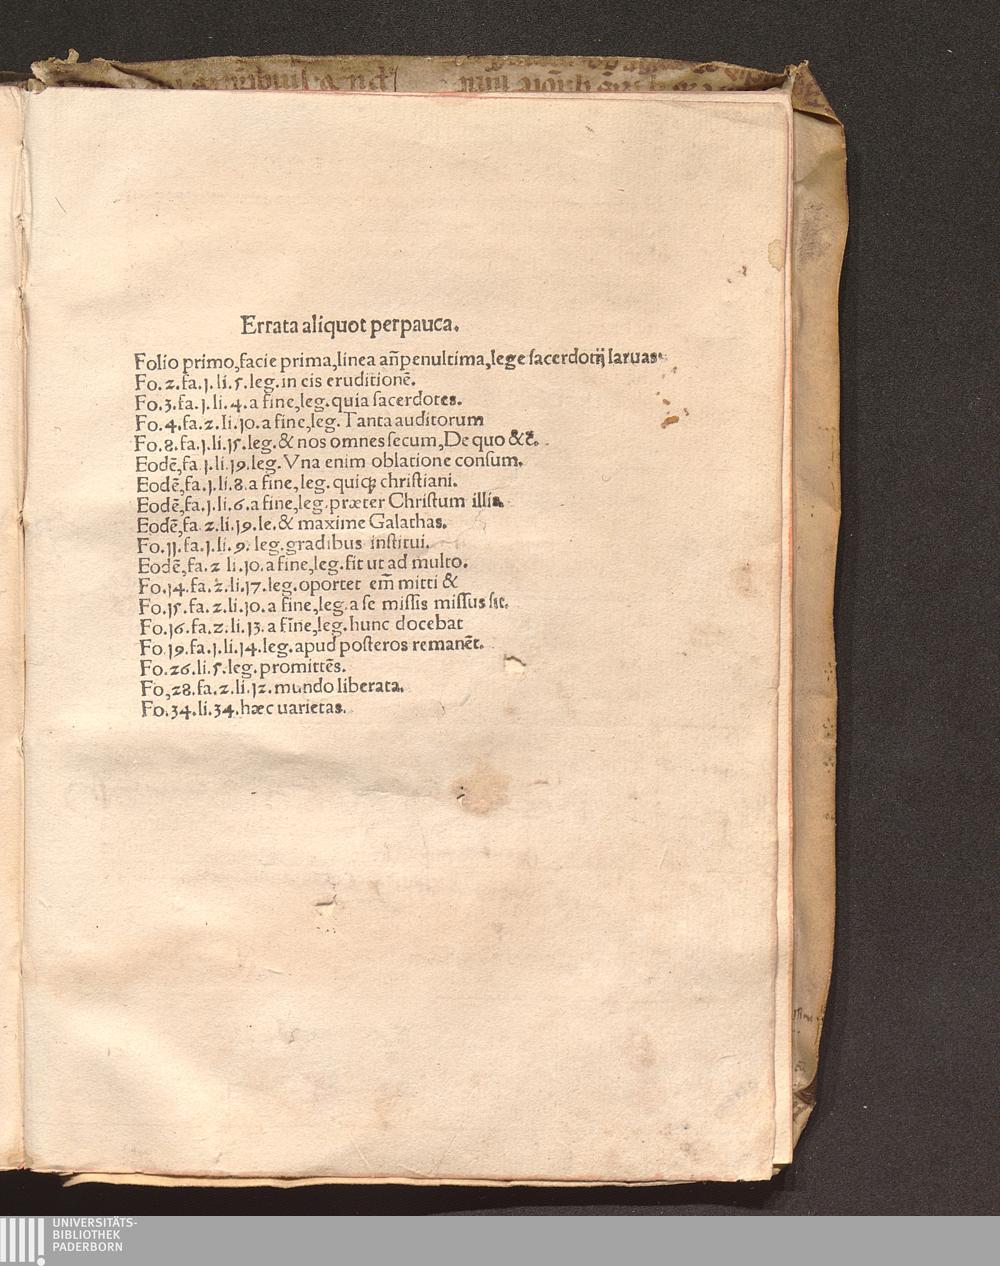 Errata aliquot perpauca.
Folio primo,facie prima,linea añpenultima,lege sacerdotij laruas
Fo.2.fa.1.li.5.leg.in eis eruditionē.
Fo.3.fa.1.li.4.a fine,leg.quia sacerdotes.
Fo.4.fa.2.li.10.a fine,leg.Tanta auditorum
Fo.8.fa.1.li.15.leg.& nos omnes secum,De quo &c̄.
Eodē,fa 1.li.19.leg.Vna enim oblatione consum.
Eodē,fa.1.li.8.a fine,leg.quiqꝫ christiani.
Eodē,fa.1.li.6.a fine,leg.præter Christum illis.
Eodē,fa.2.li.19.le.& maxime Galathas.
Fo.11.fa.1.li.9.leg.gradibus institui.
Eodē,fa.2 li.10.a fine,leg.fit ut ad multo.
Fo.14.fa.2.li.17.leg.oportet em̄ mitti &
Fo.15.fa.2.li.10.a fine,leg.a se missis missus sit.
Fo.16.fa.2.li.13.a fine,leg.hunc docebat
Fo.19.fa.1.li.14.leg.apud posteros remanēt.
Fo.26.li.5.leg.promittēs.
Fo,28.fa.2.li.12.mundo liberata.
Fo.34.li.34.hæc uarietas.
UNIVERSITÄTS-
BIBLIOTHEK
PADERBORN